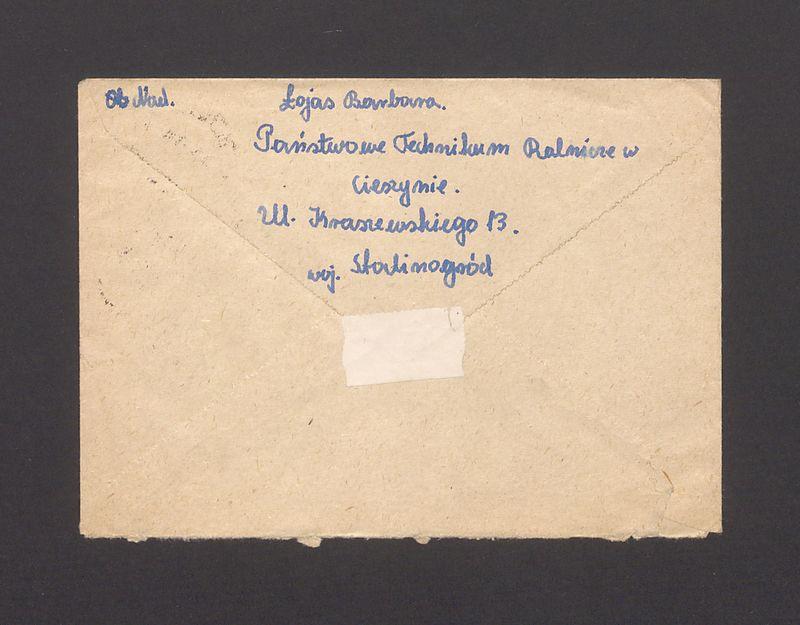 Ob Nad. Łojas Barbara.
Państwowe Technikum Rolnicze w
Cieszynie.
Ul. Kraszewskiego 13.
woj. Stalinogród